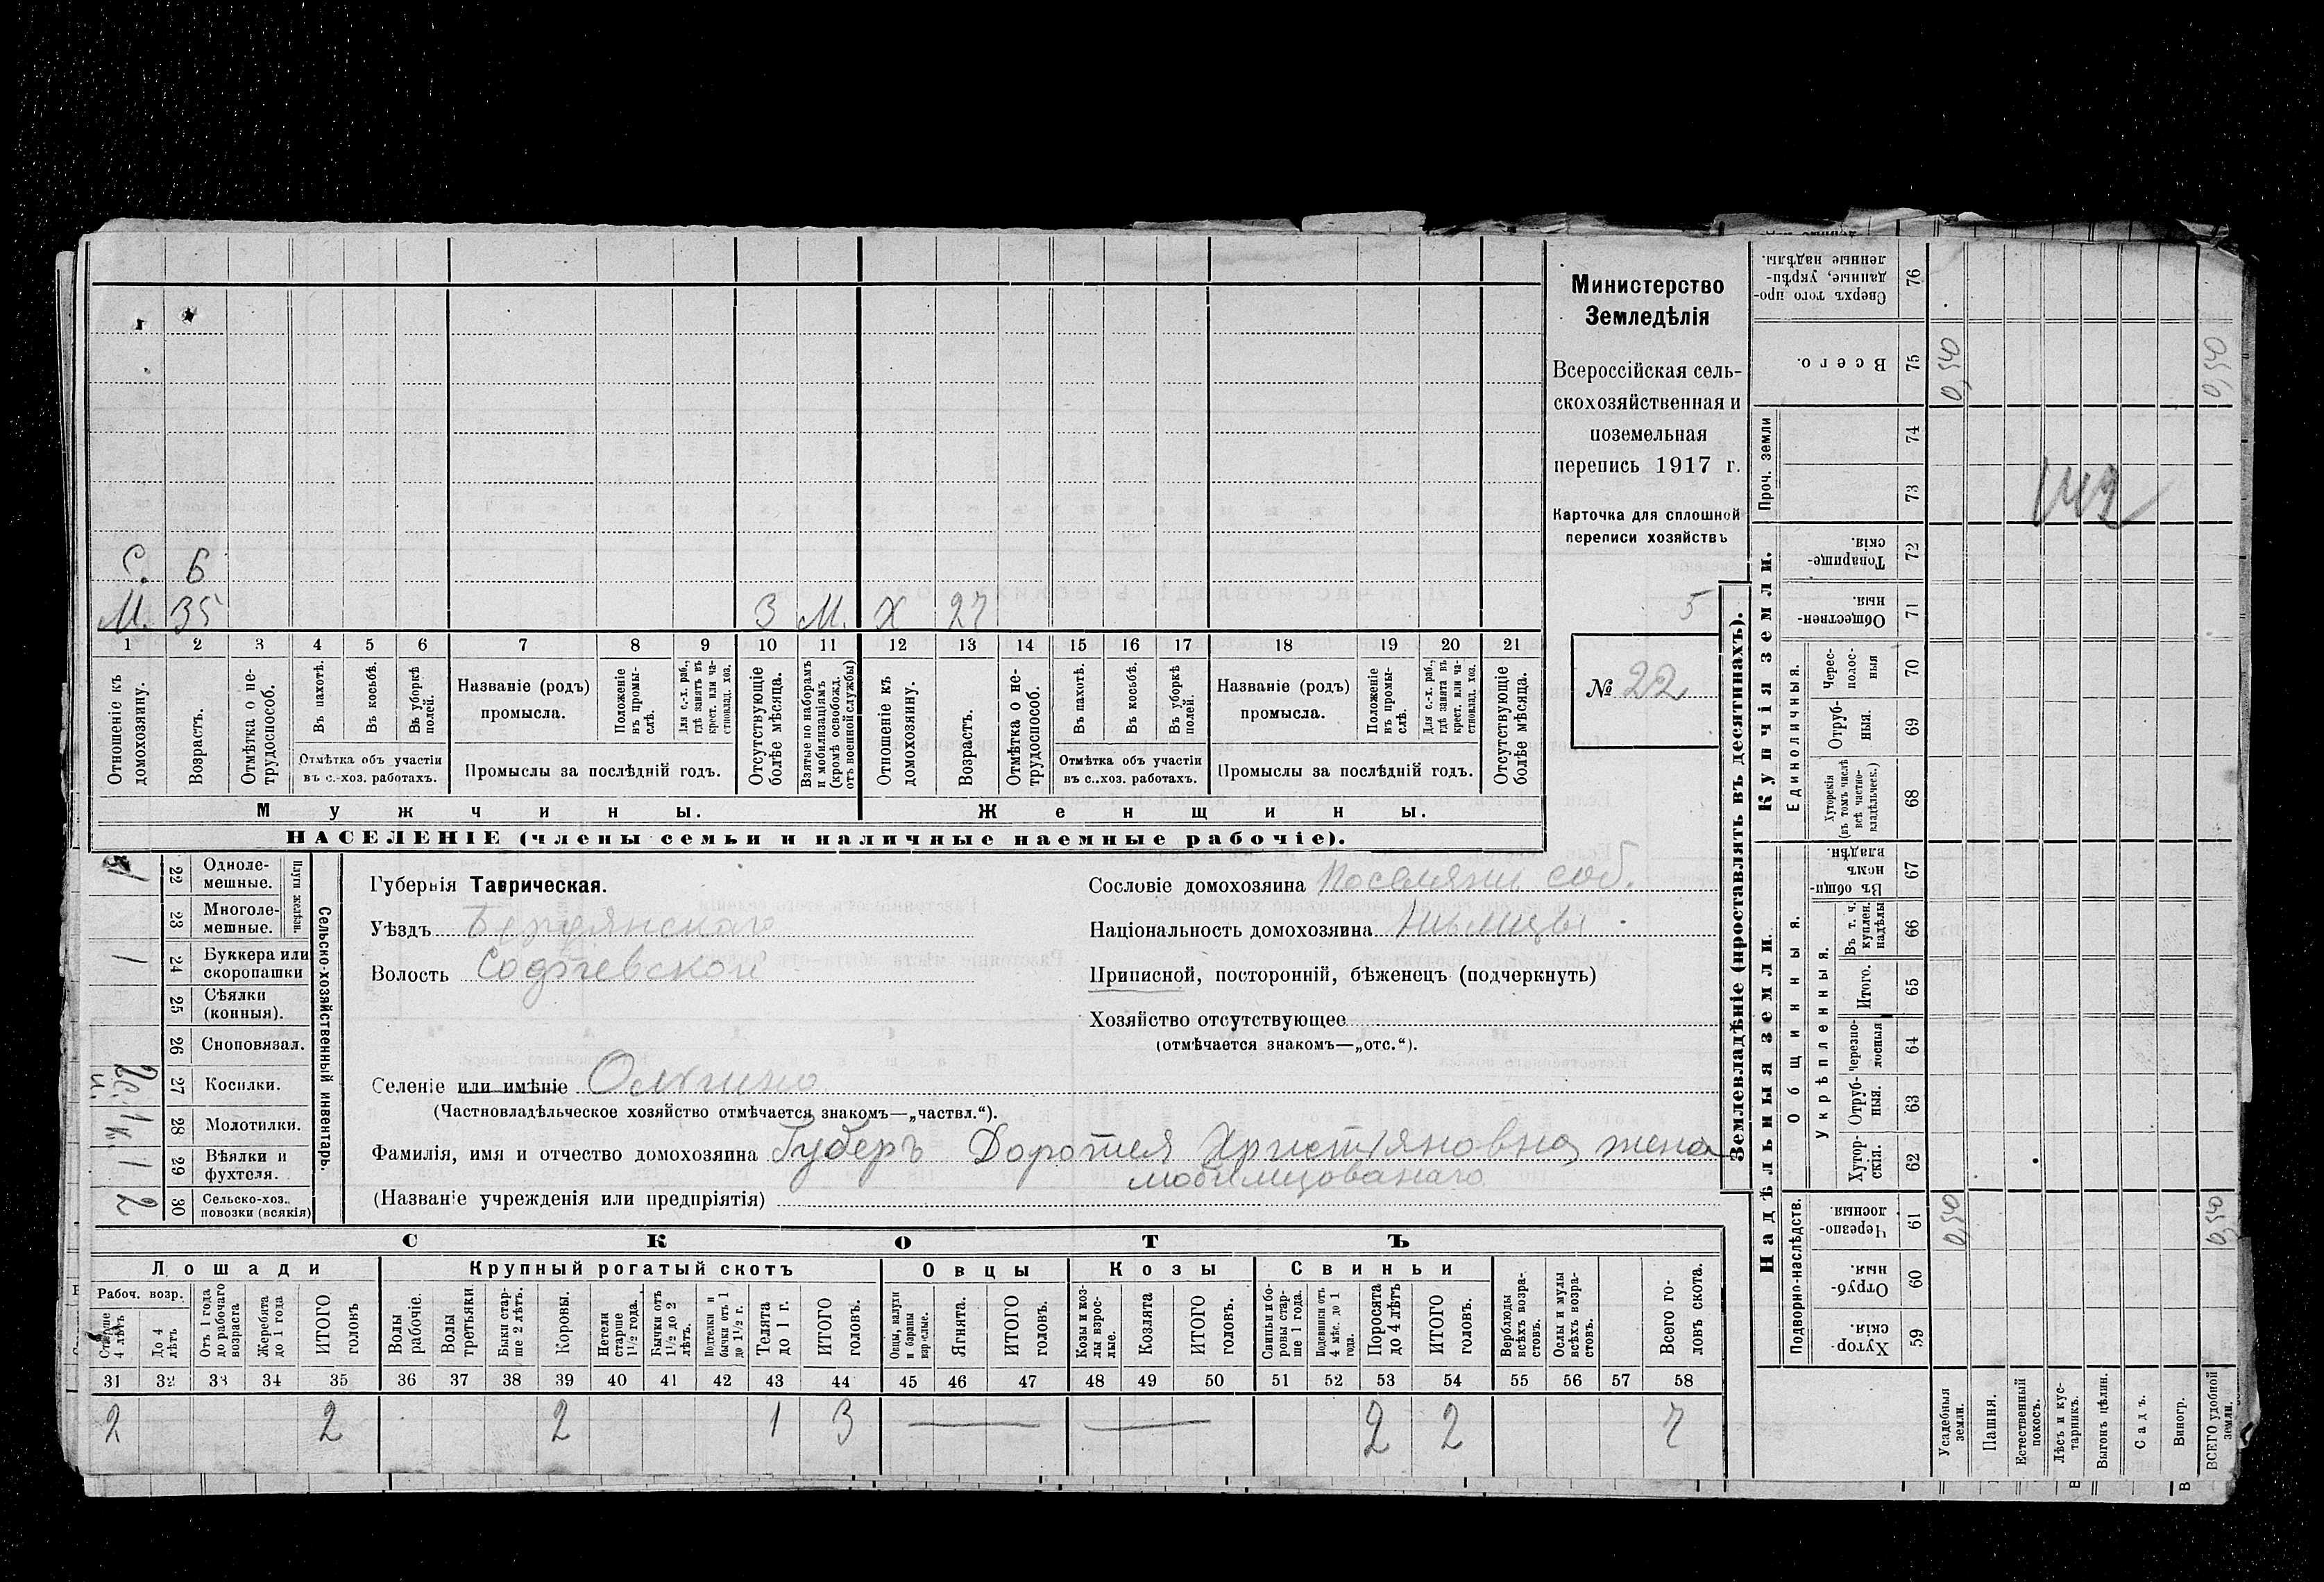 С. 6
М. 35 3 М. Х 27
1 2 3 4 5 6 7 8 9 10 11 12 13 14 15 16 17 18 19 20 21
Отношеніе къ домохозяину.
Возрастъ.
Отмѣтка о не-трудоспособ.
Въ пахотѣ.
Въ косьбѣ.
Въ уборкѣ полей.
Отмѣтка объ участіи
въ с.-хоз. работахъ.
Названіе (родъ)
промысла.
Положеніе въ промы-слѣ.
Для с.-х. раб., гдѣ занятъ въ крест. или ча-стновлад. хоз.
Промыслы за послѣдній годъ.
Отсутствующіе болѣе мѣсяца.
Взятые по наборамъ и мобилизаціямъ (кромѣ освобожд. отъ военной службы)
Отношеніе къ домохозяину.
Возрастъ.
Отмѣтка о не-трудоспособ.
Въ пахотѣ.
Въ косьбѣ.
Въ уборкѣ полей.
Отмѣтка объ участіи
въ с.-хоз. работахъ.
Названіе (родъ)
промысла.
Положеніе въ промы-слѣ.
Для с.-х. раб., гдѣ занята въ крест. или ча-стновлад. хоз.
Промыслы за послѣдній годъ.
Отсутствующіе болѣе мѣсяца.
Мужчины. Женщины.
НАСЕЛЕНІЕ (члены семьи и наличные наемные рабочіе).
Министерство
Земледѣлія
Всероссійская сель-
скохозяйственная и
поземельная
перепись 1917 г.
Карточка для сплошной
переписи хозяйствъ
5
№ 22
Сельско-хозяйственный инвентарь.
Плуги желѣзн.
22 Одноле-мешные. 1
23 Многоле-мешные.
24 Буккера или скоропашки 1
25 Сѣялки (конныя).
26 Сноповязал.
27 Косилки.
28 Молотилки. 1 к.
29 Вѣялки и фухтеля. 1
30 Сельско-хоз. повозки (всякія) 2
Губернія Таврическая.
Уѣздъ Бердянскаго
Волость Софіевской
Селеніе или имѣніе Ольгино
(Частновладѣльческое хозяйство отмѣчается знакомъ—„частвл.“).
Фамилія, имя и отчество домохозяина Губеръ Доротея Христіяновна, жена
мобилизованаго
(Названіе учрежденія или предпріятія)
Сословіе домохозяина Поселяни соб.
Національность домохозяина Нѣмцы
Приписной, посторонній, бѣженецъ (подчеркнуть)
Хозяйство отсутствующее
(отмѣчается знакомъ—„отс.“).
СКОТЪ
Лошади Крупный рогатый скотъ Овцы Козы Свиньи
Рабоч. возр.
Старше 4 лѣтъ
До 4 лѣтъ
Отъ 1 года до рабочаго возраста
Жеребята до 1 года
ИТОГО головъ
Волы рабочіе.
Волы третьяки.
Быки стар-ше 2 лѣтъ.
Коровы.
Нетели старше 1 1/2 года.
Бычки отъ 1 1/2 до 2 лѣтъ.
Подтелки и бычки отъ 1 до 1 1/2 г.
Телята до 1 г.
ИТОГО головъ.
Овцы, валухи и бараны взрослые.
Ягнята.
ИТОГО головъ.
Козы и коз-лы взрос-лые.
Козлята
ИТОГО головъ.
Свиньи и бо-ровы стар-ше 1 года.
Подсвинки отъ 4 мѣс. до 1 года.
Поросята до 4 лѣтъ
ИТОГО головъ.
Верблюды всѣхъ возра-стовъ.
Ослы и мулы всѣхъ возра-стовъ.
Всего го-ловъ скота.
31 32 33 34 35 36 37 38 39 40 41 42 43 44 45 46 47 48 49 50 51 52 53 54 55 56 57 58
2 2 2 1 3 — — 2 2 7
Землевладѣніе (проставлять въ десятинахъ).
Надѣльныя земли. Купчія земли. Проч. земли
Подворно-наслѣдств.
Общинныя.
Укрѣпленныя.
Единоличныя.
Сверхъ того про-данные, укрѣп-ленные надѣлы. 76
Всего. 75 0,540 0,540
74
73
Товарище-скія. 72
Обществен-ныя. 71
Черес-полос-ныя 70
Отруб-ныя. 69
Хуторскія (въ томъ числѣ всѣ частно-владѣльчек.) 68
Въ общи-номъ владѣн. 67
Въ т. ч. куплен. надѣлы 66
Итого. 65
Черезпо-лосныя 64
Отруб-ныя. 63
Хутор-скія. 62
Черезпо-лосныя. 61 0,540 0,540
Отруб-ныя. 60
Хутор-скія. 59
Усадебныя земли.
Пашня.
Естественный покосъ.
Лѣсъ и кус-тарникъ.
Выгонъ цѣлин.
Садъ.
Виногр.
ВСЕГО удобной земли.